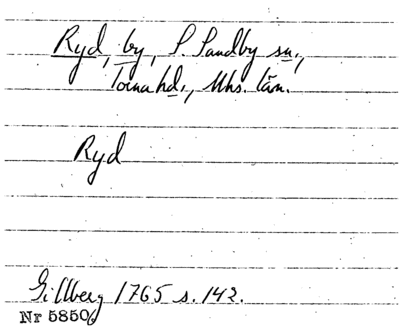 Ryd, by, S. Sandby sn.,
Torna hd., Mhs. län.
Ryd
Gillberg 1765 s. 142.
Nr 5850